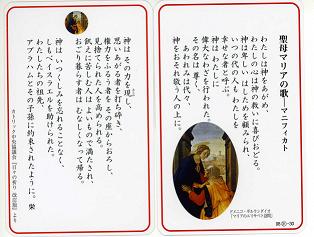 聖母マリアの歌 ―マニフィカト
わたしは神をあがめ、
わたしの心は神の救いに喜びおどる。
神は卑しいはしためを顧みられ、
いつの代の人も わたしを
幸せな者と呼ぶ。
神はわたしに
偉大なわざを行われた。
その名は尊く、
あわれみは代々、
神をおそれ敬う人の上に。
ドメニコ・ギルランダイオ
「マリアのエリサベト訪問」
神はその力を現し、
思いあがる者を打ち砕き、
権力をふるう者をその座からおろし、
見捨てられた人を高められる。
飢えに苦しむ人はよいもので満たされ、
おごり暮らす者はむなしくなって帰る。
神はいつくしみを忘れることなく、
しもべイスラエルを助けられた。
わたしたちの祖先、
アブラハムとその子孫に約束されたように。 栄
カトリック中央協議会『日々の祈り 改訂版』より